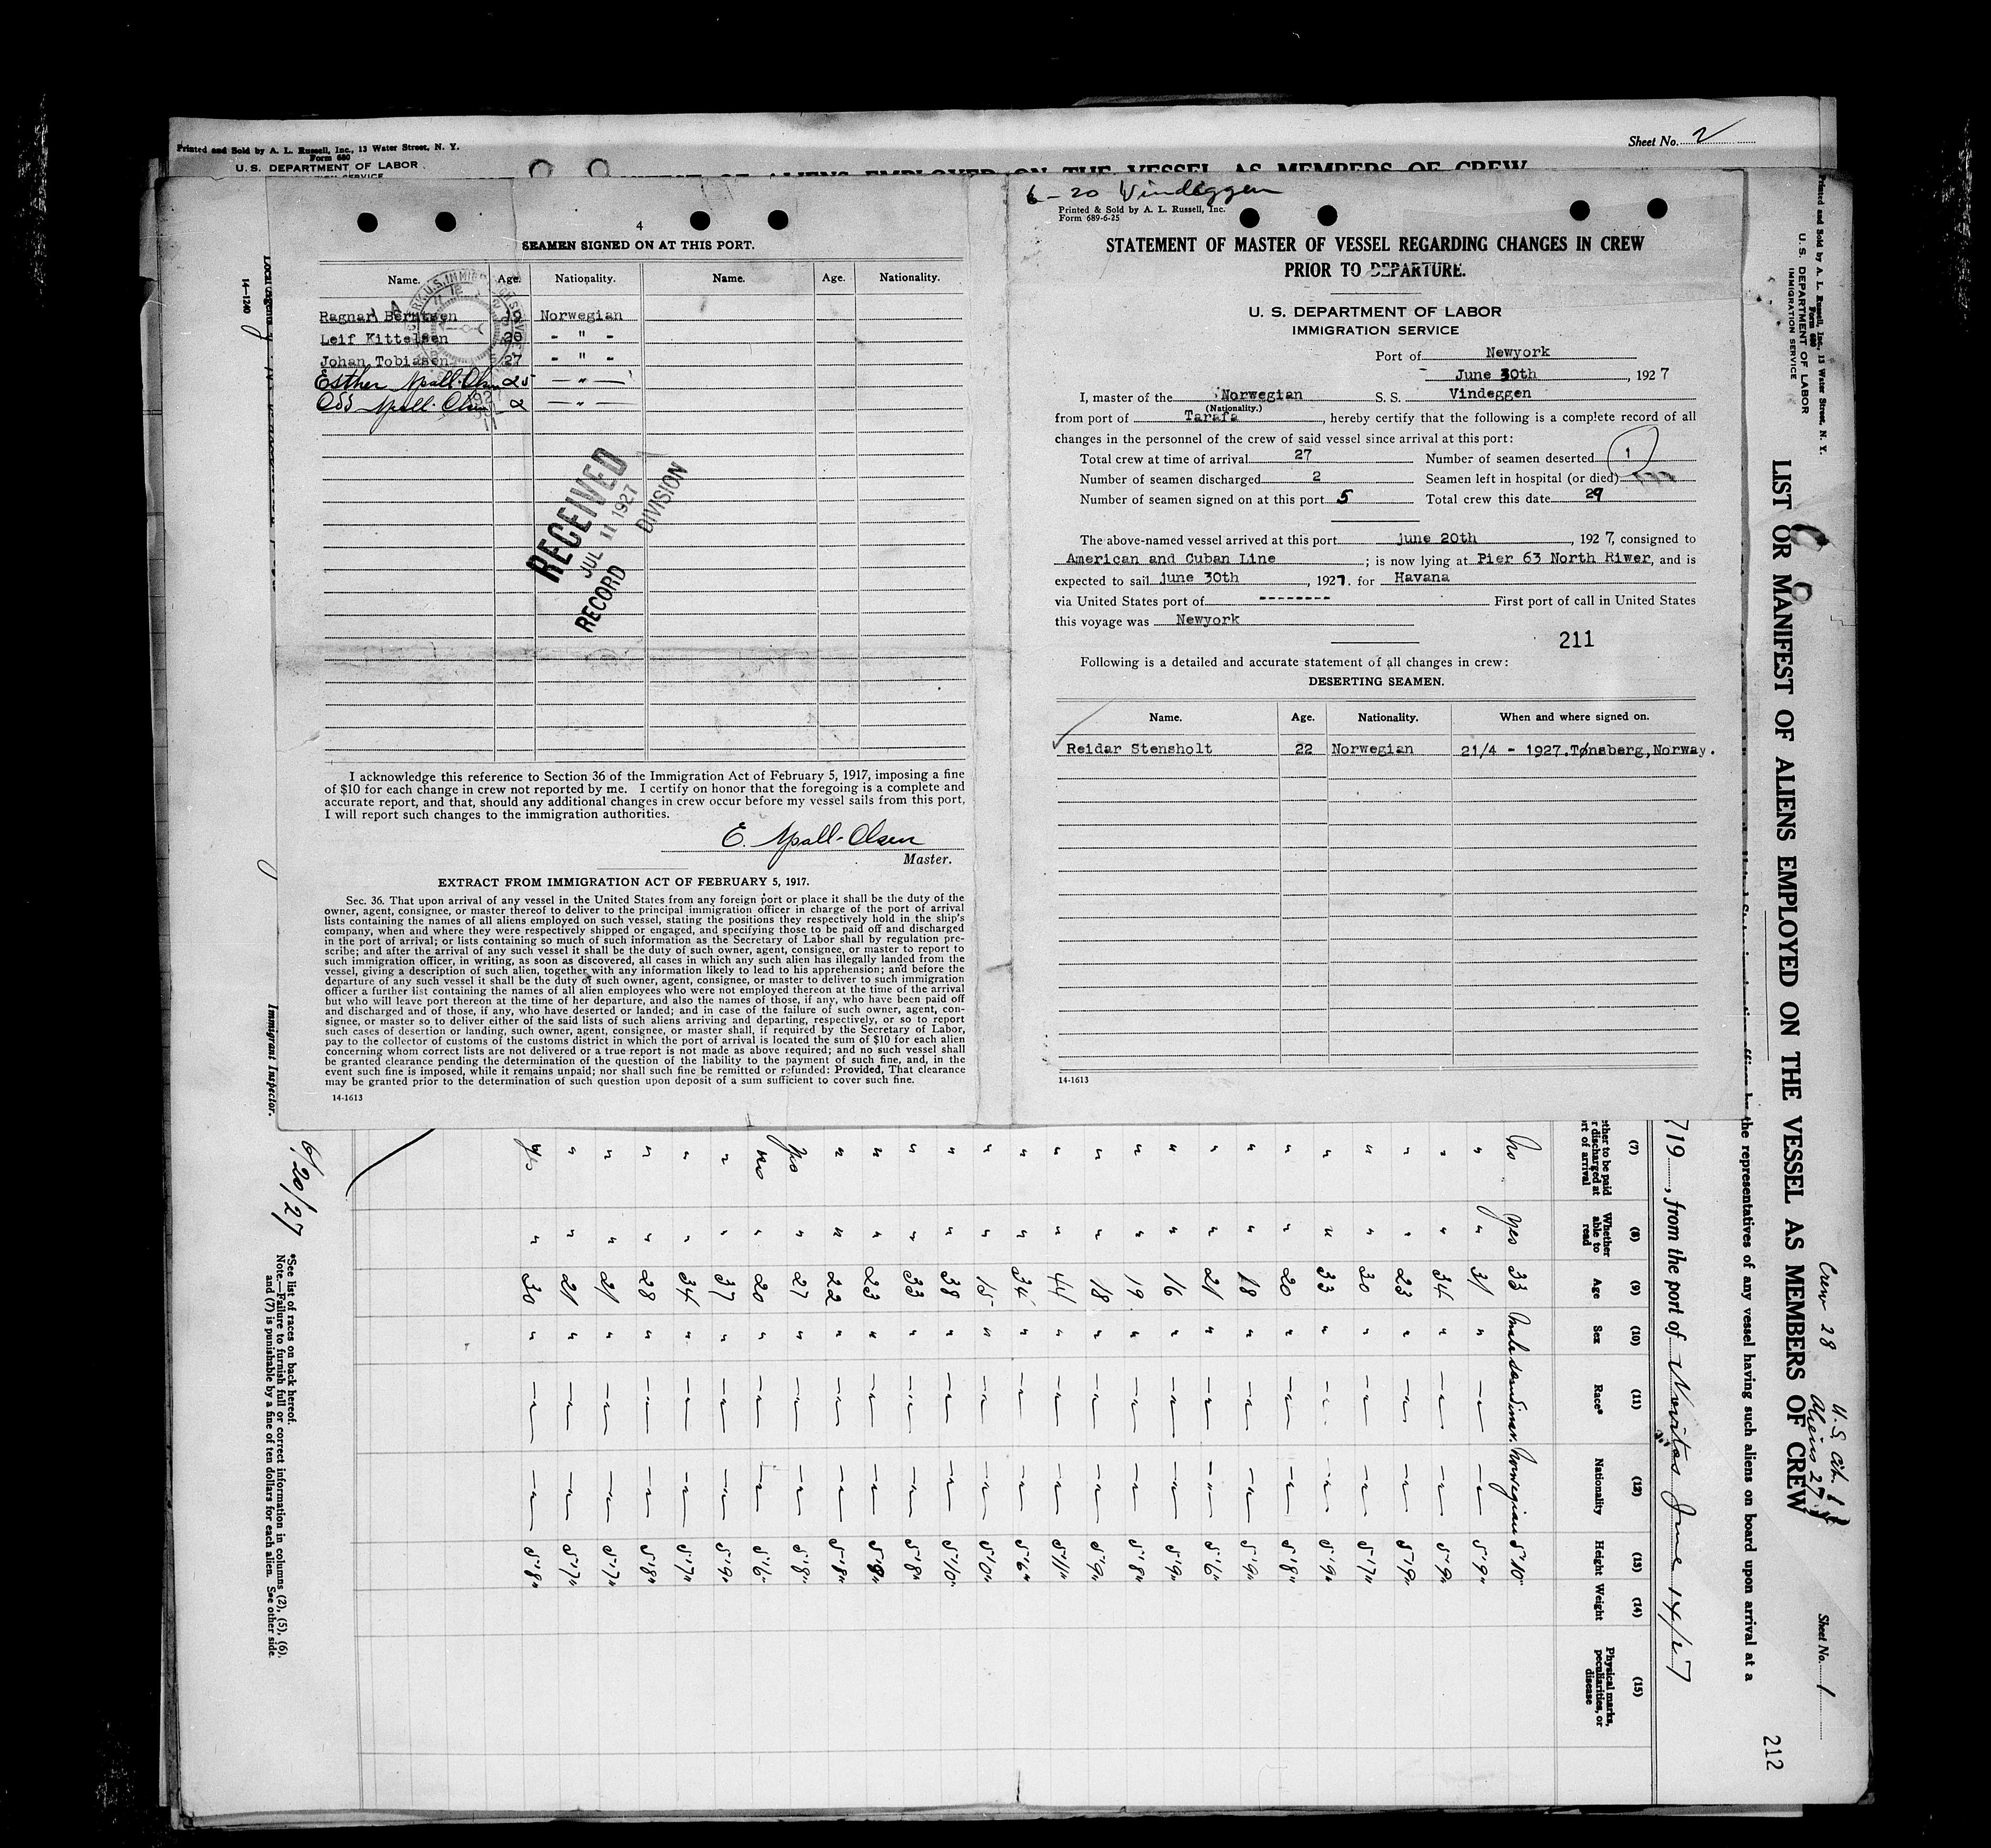 Printed and Sold by A. L. Russell, Inc., 13 Water Street, N. Y.
Form 680
U. S. DEPARTMENT OF LABOR
Sheet No. 2
OF ALIENS EMPLOYED ON THE VESSEL AS MEMBERS OF CREW
4
SEAMEN SIGNED ON AT THIS PORT.
Name. Age. Nationality. Name. Age. Nationality.
Ragnar Berntsen 19 Norwegian
Leif Kittelsen 20 - " -
Johan Tobiasen 27 - " -
Esther Mall-Olsen 25 - " -
Odd Mall-Olsen 2 - " -
RECEIVED
JUL 11 1927
RECORD DIVISION
I acknowledge this reference to Section 36 of the Immigration Act of February 5, 1917, imposing a fine
of $10 for each change in crew not reported by me. I certify on honor that the foregoing is a complete and
accurate report, and that, should any additional changes in crew occur before my vessel sails from this port,
I will report such changes to the immigration authorities.
E. Mall-Olsen
Master.
EXTRACT FROM IMMIGRATION ACT OF FEBRUARY 5, 1917.
Sec. 36. That upon arrival of any vessel in the United States from any foreign port or place it shall be the duty of the
owner, agent, consignee, or master thereof to deliver to the principal immigration officer in charge of the port of arrival
lists containing the names of all aliens employed on such vessel, stating the positions they respectively hold in the ship's
company, when and where they were respectively shipped or engaged, and specifying those to be paid off and discharged
in the port of arrival; or lists containing so much of such information as the Secretary of Labor shall by regulation pre-
scribe; and after the arrival of any such vessel it shall be the duty of such owner, agent, consignee, or master to report to
such immigration officer, in writing, as soon as discovered, all cases in which any such alien has illegally landed from the
vessel, giving a description of such alien, together with any information likely to lead to his apprehension; and before the
departure of any such vessel it shall be the duty of such owner, agent, consignee, or master to deliver to such immigration
officer a further list containing the names of all alien employees who were not employed thereon at the time of the arrival
but who will leave port thereon at the time of her departure, and also the names of those, if any, who have been paid off
and discharged and of those, if any, who have deserted or landed; and in case of the failure of such owner, agent, con-
signee, or master so to deliver either of the said lists of such aliens arriving and departing, respectively, or so to report
such cases of desertion or landing, such owner, agent, consignee, or master shall, if required by the Secretary of Labor,
pay to the collector of customs of the customs district in which the port of arrival is located the sum of $10 for each alien
concerning whom correct lists are not delivered or a true report is not made as above required; and no such vessel shall
be granted clearance pending the determination of the question of the liability to the payment of such fine, and, in the
event such fine is imposed, while it remains unpaid; nor shall such fine be remitted or refunded: Provided, That clearance
may be granted prior to the determination of such question upon deposit of a sum sufficient to cover such fine.
14-1613
6-20 Vindeggen
Printed & Sold by A. L. Russell, Inc.
Form 689-6-25
STATEMENT OF MASTER OF VESSEL REGARDING CHANGES IN CREW
PRIOR TO DEPARTURE.
U. S. DEPARTMENT OF LABOR
IMMIGRATION SERVICE
Port of Newyork
June 30th, 1927
I, master of the Norwegian S. S. Vindeggen
(Nationality.)
from port of Tarafa, hereby certify that the following is a complete record of all
changes in the personnel of the crew of said vessel since arrival at this port:
Total crew at time of arrival 27 Number of seamen deserted 1
Number of seamen discharged 2 Seamen left in hospital (or died)
Number of seamen signed on at this port 5 Total crew this date 29
The above-named vessel arrived at this port june 20th, 1927, consigned to
American and Cuban Line; is now lying at Pier 63 North Riwer, and is
expected to sail june 30th, 1927. for Havana
via United States port of -------- First port of call in United States
this voyage was Newyork
211
Following is a detailed and accurate statement of all changes in crew:
DESERTING SEAMEN.
Name. Age. Nationality. When and where signed on.
Reidar Stensholt 22 Norwegian 21/4 - 1927.Tønsberg,Norway.
14-1613
Printed and Sold by A. L. Russell, Inc., 13 Water Street, N. Y.
Form 680
U. S. DEPARTMENT OF LABOR
IMMIGRATION SERVICE
LIST OR MANIFEST OF ALIENS EMPLOYED ON THE VESSEL AS MEMBERS OF CREW
Crew 28
U.S. Cit. 1
Aliens 27
Sheet No. 1
212
the representatives of any vessel having such aliens on board upon arrival at a
719, from the port of Nevitas June 14/27
(7) (8) (9) (10) (11) (12) (13) (14) (15)
Whether able to read Age Sex Race* Nationality Height Weight Physical marks, peculiarities, or disease
No Yes 33 Male Scandinav. Norwegian 5'10"
" " 31 " - " - - " - 5'9"
" " 34 " - " - - " - 5'9"
" " 23 " - " - - " - 5'9"
" " 30 " - " - - " - 5'7"
" " 33 " - " - - " - 5'9"
" " 20 " - " - - " - 5'8"
" " 18 " - " - - " - 5'9"
" " 21 " - " - - " - 5'6"
" " 16 " - " - - " - 5'9"
" " 19 " - " - - " - 5'8"
" " 18 " - " - - " - 5'9"
" " 44 " - " - - " - 5'11"
" " 34 " - " - - " - 5'6"
" " 15 " - " - - " - 5'0"
" " 38 " - " - - " - 5'10"
" " 33 " - " - - " - 5'8"
" " 23 " - " - - " - 5'9"
" " 22 " - " - - " - 5'8"
Yes " 27 " - " - - " - 5'8"
No " 20 " - " - - " - 5'6"
" " 37 " - " - - " - 5'9"
" " 34 " - " - - " - 5'7"
" " 28 " - " - - " - 5'8"
" " 21 " - " - - " - 5'7"
" " 21 " - " - - " - 5'7"
Yes " 30 " - " - - " - 5'8"
*See list of races on back hereof.
Note.—Failure to furnish full or correct information in columns (2), (5), (6),
and (7) is punishable by a fine of ten dollars for each alien. See other side
6/20/27
Immigrant Inspector.
14-1240